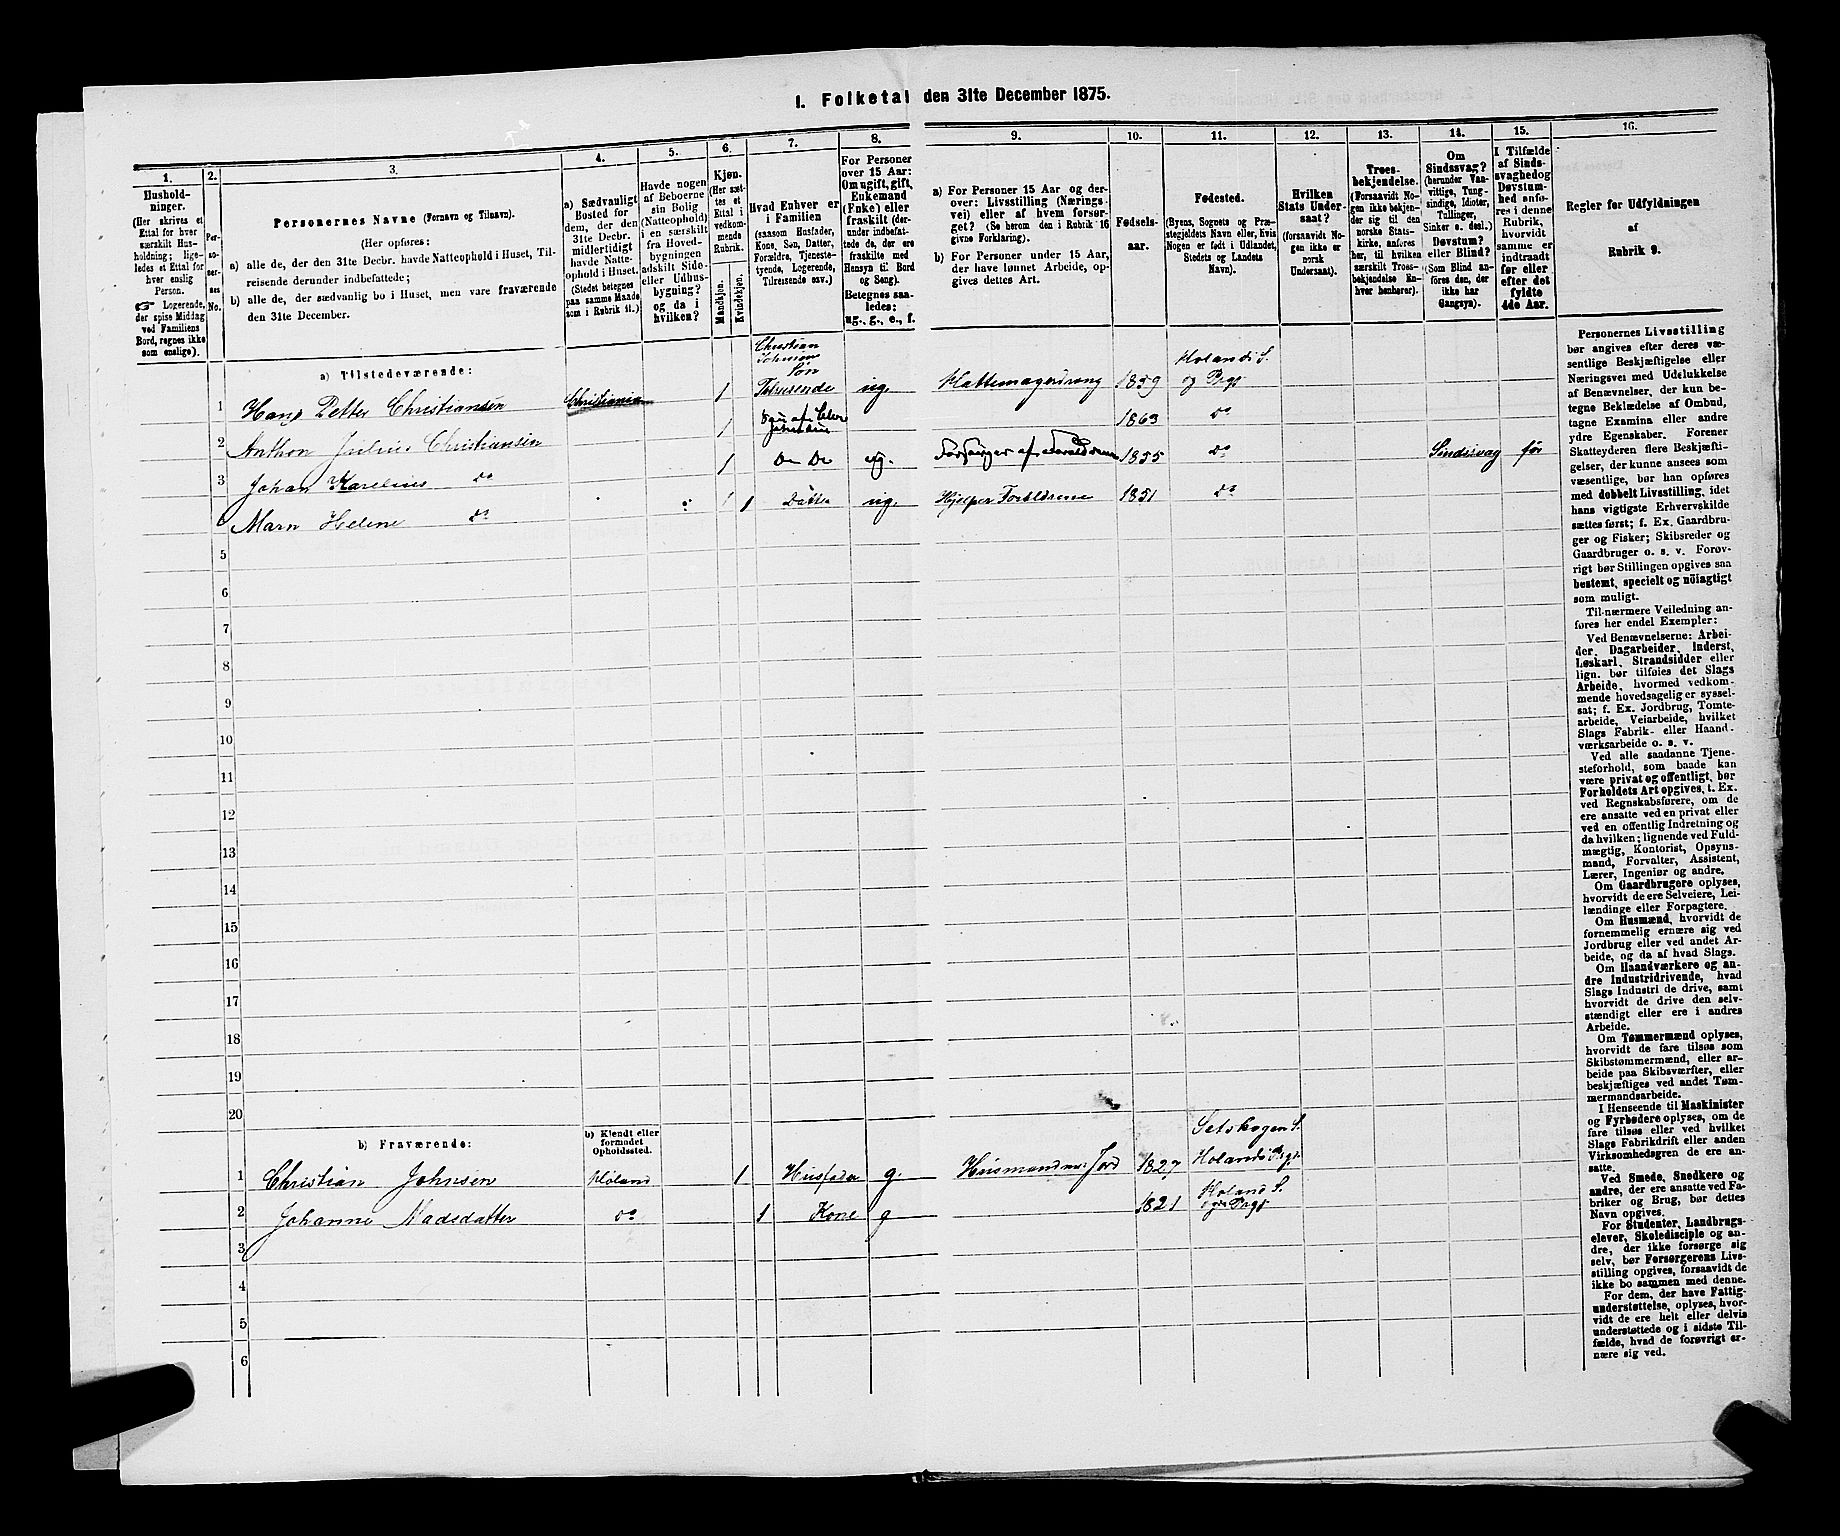 1. Folketal den 31te December 1875.
1. 2. 3. 4. 5. 6. 7. 8. 9. 10. 11. 12. 13. 14. 15. 16.
Hushold-
ninger.
(Her skrives et
Ettal for hver
særskilt Hus-
holdning; lige-
ledes et Ettal for
hver enslig
Person.
Logerende,
der spise Middag
ved Familiens
Bord, regnes ikke
som enslige).
Per-
so-
ner-
nes
No.
Personernes Navne (Fornavn og Tilnavn).
(Her opføres:
a) alle de, der den 31te Decbr. havde Natteophold i Huset, Til-
reisende derunder indbefattede;
b) alle de, der sædvanlig bo i Huset, men vare fraværende
den 31te December.
a) Sædvanligt
Bosted for
dem, der den
31te Decbr.
midlertidigt
havde Natte-
ophold i Huset.
(Stedet betegnes
paa samme Maade
som i Rubrik 11.)
Havde nogen
af Beboerne
sin Bolig
(Natteophold)
i en særskilt
fra Hoved-
bygningen
adskilt Side-
eller Udhus-
bygning?
og da i
hvilken?
Kjøn.
(Her sæt-
tes et
Ettal i
vedkom-
mende
Rubrik.
Mandkjøn.
Kvindekjøn.
Hvad Enhver er
i Familien
(saasom Husfader,
Kone, Søn, Datter,
Forældre, Tjeneste-
tyende, Logerende,
Tilreisende osv.)
For Personer
over 15 Aar:
Om ugift, gift,
Enkemand
(Enke) eller
fraskilt (der-
under indbefat-
tede de, der ere
fraskilte med
Hensyn til Bord
og Seng).
Betegnes saa-
ledes:
ug., g., e., f.
a) For Personer 15 Aar og der-
over: Livsstilling (Nærings-
vei) eller af hvem forsør-
get? (Se herom den i Rubrik 16
givne Forklaring).
b) For Personer under 15 Aar,
der have lønnet Arbeide, op-
gives dettes Art.
Fødsels-
aar.
Fødested.
(Byens, Sognets og Præ-
stegjeldets Navn eller, hvis
Nogen er født i Udlandet,
Stedets og Landets
Navn).
Hvilken
Stats Under-
saat?
(forsaavidt No-
gen ikke er
norsk
Undersaat).
Troes-
bekjendelse.
(Forsaavidt No-
gen ikke bekjen-
der sig til den
norske Stats-
kirke, anføres
her, til hvilken
særskilt Troes-
bekjendelse En-
hver henhører).
Om
Sindssvag?
(herunder Van-
vittige, Tung-
sindige, Idioter,
Tullinger,
Sinker o. desl.)
Døvstum?
eller Blind?
(Som Blind an-
føres den, der
ikke har
Gangsyn).
I Tilfælde
af Sinds-
svaghed og
Døvstum-
hed anfø-
res i denne
Rubrik,
hvorvidt
samme er
indtraadt
før eller
efter det
fyldte
4de Aar.
Regler for Udfyldningen
af
Rubrik 9.
a) Tilstedeværende:
1 Hans Petter Christiansen Christiania 1 Christian Johnsens Søn Tilreisende ug. Hattemagerdreng 1859 Holands S. og Prgj.
2 Anthon Julius Christiansen 1 1863 do
3 Johan Karelius do 1 Do Do ug. Forsørges af Forældrene 1855 do Sindssvag før
4 Marn Helene do 1 Datter ug. Hjelper Forældrene 1851 do
5
6
7
8
9
10
11
12
13
14
15
16
17
18
19
20
b) Fraværende:
b) Kjendt eller
formodet
Opholdssted.
1 Christian Johnsen Høland 1 Husfader g. Husmand m. Jord 1827 Setskogen S. Holands Prgj.
2 Johanne Madsdatter do 1 Kone g 1821 Holand S. og Prgj.
3
4
5
6
Personernes Livsstilling
bør angives efter deres væ-
sentlige Beskjæftigelse eller
Næringsvei med Udelukkelse
af Benævnelser, der kun be-
tegne Beklædelse af Ombud,
tagne Examina eller andre
ydre Egenskaber. Forener
Skatteyderen flere Beskjæfti-
gelser, der kunne ansees som
væsentlige, bør han opføres
med dobbelt Livsstilling, idet
hans vigtigste Erhvervskilde
sættes først; f. Ex. Gaardbru-
ger og Fisker; Skibsreder og
Gaardbruger o. s. v. Forøv-
rigt bør Stillingen opgives saa
bestemt, specielt og nöiagtigt
som muligt.
Til nærmere Veiledning an-
føres her endel Exempler:
Ved Benævnelserne: Arbei-
der, Dagarbeider, Inderst,
Løskarl, Strandsidder eller
lign. bør tilføies det Slags
Arbeide, hvormed vedkom-
mende hovedsagelig er syssel-
sat; f. Ex. Jordbrug, Tomte-
arbeide, Veiarbeide, hvilket
Slags Fabrik- eller Haand-
værksarbeide o. s. v.
Ved alle saadanne Tjene-
steforhold, som baade kan
være privat og offentligt, bør
Forholdets Art opgives, t. Ex.
ved Regnskabsførere, om de
ere ansatte ved en privat eller
ved en offentlig Indretning og
da hvilken; lignende ved Fuld-
mægtig, Kontorist, Opsyns-
mand, Forvalter, Assistent,
Lærer, Ingeniør og andre.
Om Gaardbrugere oplyses,
hvorvidt de ere Selveiere, Lei-
lændinge eller Forpagtere.
Om Husmænd, hvorvidt de
fornemmelig ernære sig ved
Jordbrug eller ved andet Ar-
beide, og da af hvad Slags.
Om Haandværkere og an-
dre Industridrivende, hvad
Slags Industri de drive, samt
hvorvidt de drive den selv-
stændigt eller ere i andres
Arbeide.
Om Tømmermænd oplyses,
hvorvidt de fare tilsøs som
Skibstømmermænd, eller ar-
beide paa Skibsværfter, eller
beskjæftiges ved andet Tøm-
mermandsarbeide.
I Henseende til Maskinister
og Fyrbødere oplyses, om de
fare tilsøs eller ved hvilket
Slags Fabrikdrift eller anden
Virksomhedsgren de ere an-
satte.
Ved Smede, Snedkere og
andre, der ere ansatte ved Fa-
briker og Brug, bør dettes
Navn opgives.
For Studenter, Landbrugs-
elever, Skoledisciple og an-
dre, der ikke forsørge sig
selv, bør Forsørgerens Livs-
stilling opgives, forsaavidt de
ikke bo sammen med denne.
For dem, der have Fattig-
understøttelse, oplyses, hvor-
vidt de ere helt eller delvis
understøttede og i sidste Til-
fælde, hvad de forøvrigt er-
nære sig ved.